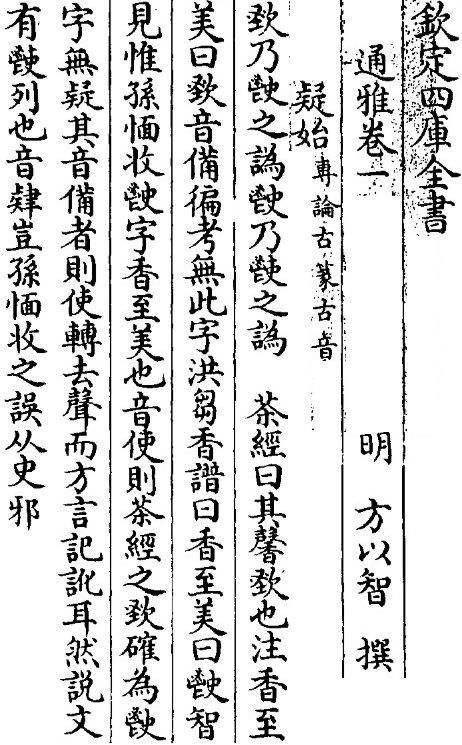 欽定四庫全書
通雅卷一 明 方以智 撰
疑始 專論古篆古音
乃之譌乃之譌 茶經曰其馨也注香至
美曰音備徧考無此字洪芻香譜曰香至美曰智
見惟孫愐收字香至美也音使則茶經之確為
字無疑其音備者則使轉去聲而方言記訛耳然說文
有列也音肄豈孫愐收之誤从史邪